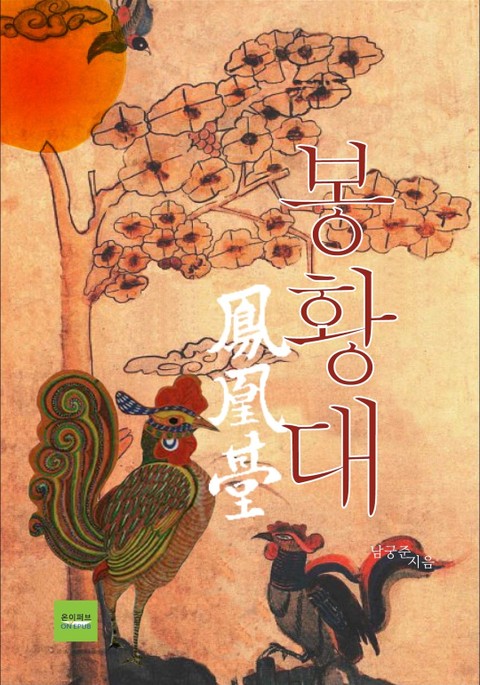 봉황대
鳳凰臺
남궁준
지음
온이퍼브
ON EPUB